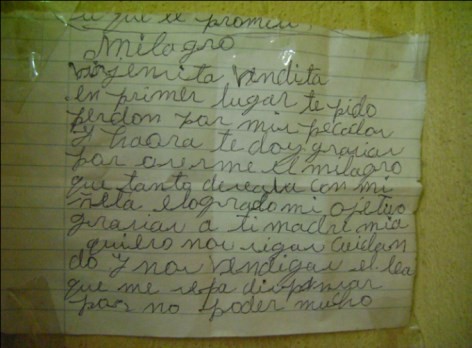 lo que te prometi
Milagro
Virgencita Vendita
en primer lugar te pido
perdon por mis pecados
y haora te doy gracias
por aserme el milagro
que tanto deseaba con mi
ñeta e logrado mi ojetivo
gracias a ti madre mia
quiero nos sigas cuidan
do y nos bendigas el
que me sepa dispensar
por no poder mucho